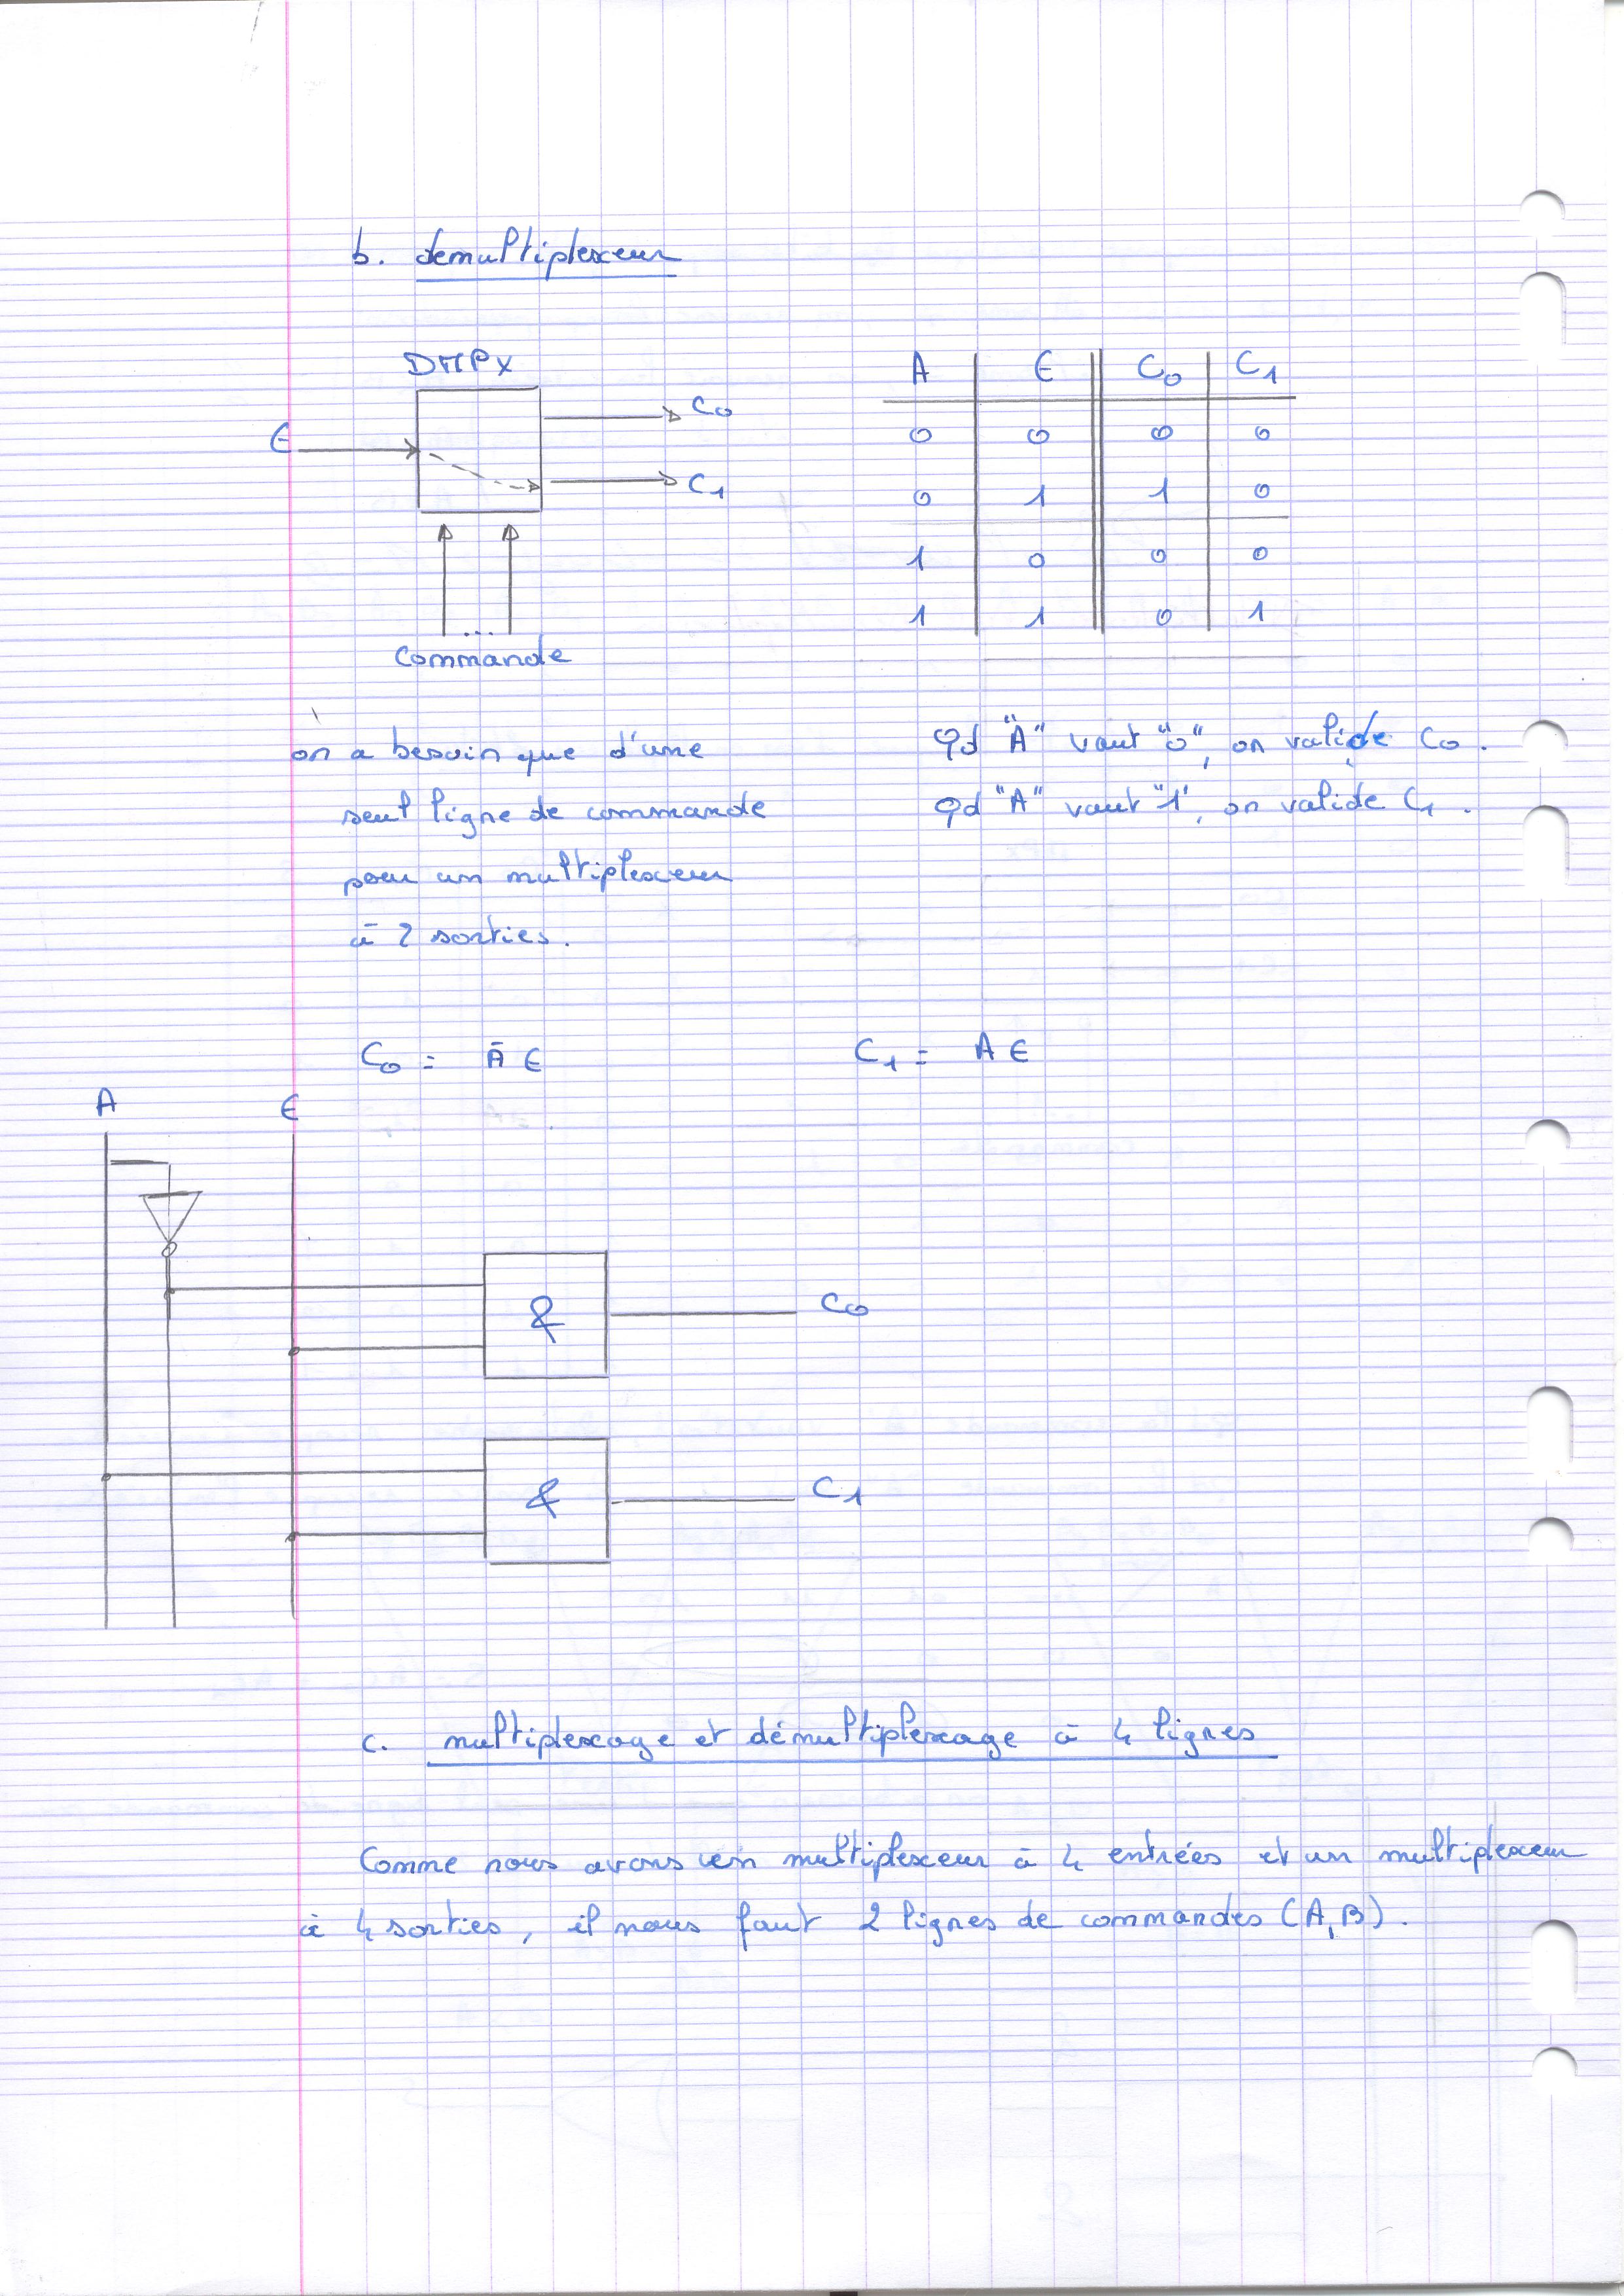 b. demultiplexeur
DMPX
E
C0
C1
...
Commande
A E C0 C1
0 0 0 0
0 1 1 0
1 0 0 0
1 1 0 1
on a besoin que d'une
seul ligne de commande
pour un multiplexeur
à 2 sorties.
Qd "A" vaut "0", on valide C0.
Qd "A" vaut "1", on valide C1.
C0 = Ā E
C1 = A E
A E
&
C0
&
C1
c. multiplexage et démultiplexage à 4 lignes
Comme nous avons un multiplexeur à 4 entrées et un multiplexeur
à 4 sorties, il nous faut 2 lignes de commandes (A,B).